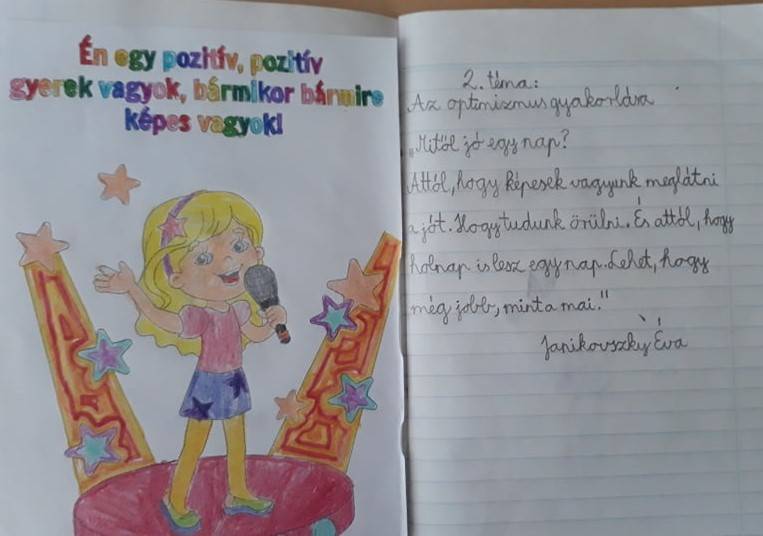 Én egy pozitív, pozitív
gyerek vagyok, bármikor bármire
képes vagyok!
2. téma:
Az optimizmus gyakorlása
„Mitől jó egy nap?
Attól, hogy képesek vagyunk meglátni
a jót. Hogy tudunk örülni. És attól, hogy
holnap is lesz egy nap. Lehet, hogy
még jobb, mint a mai."
Janikovszky Éva